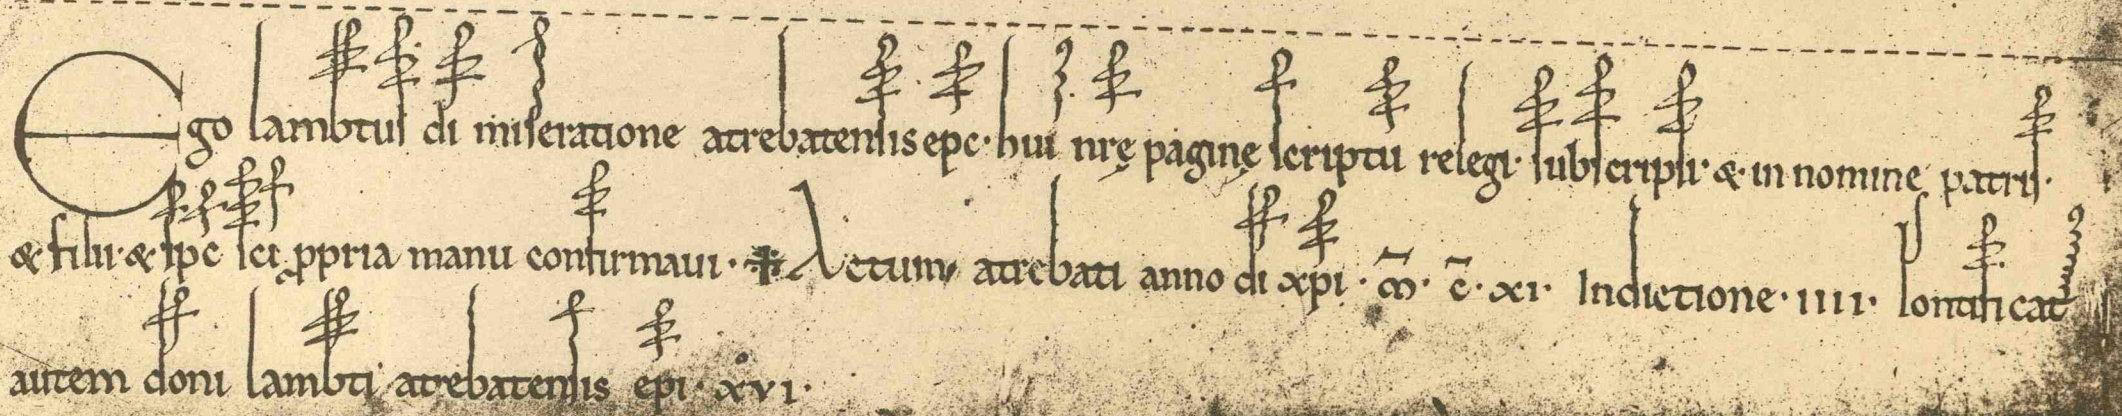 Ego lambtus di miseratione atrebatensis epc. hui nrę paginę scriptu relegi. subscripsi. & in nomine patris.
& filii. & spc sci propria manu confirmavi. ✝ Actum atrebati anno di xpi. m̄. c̄. xi. Indictione. iiii. Pontificat
autem doni lambti atrebatensis epi. xvi.